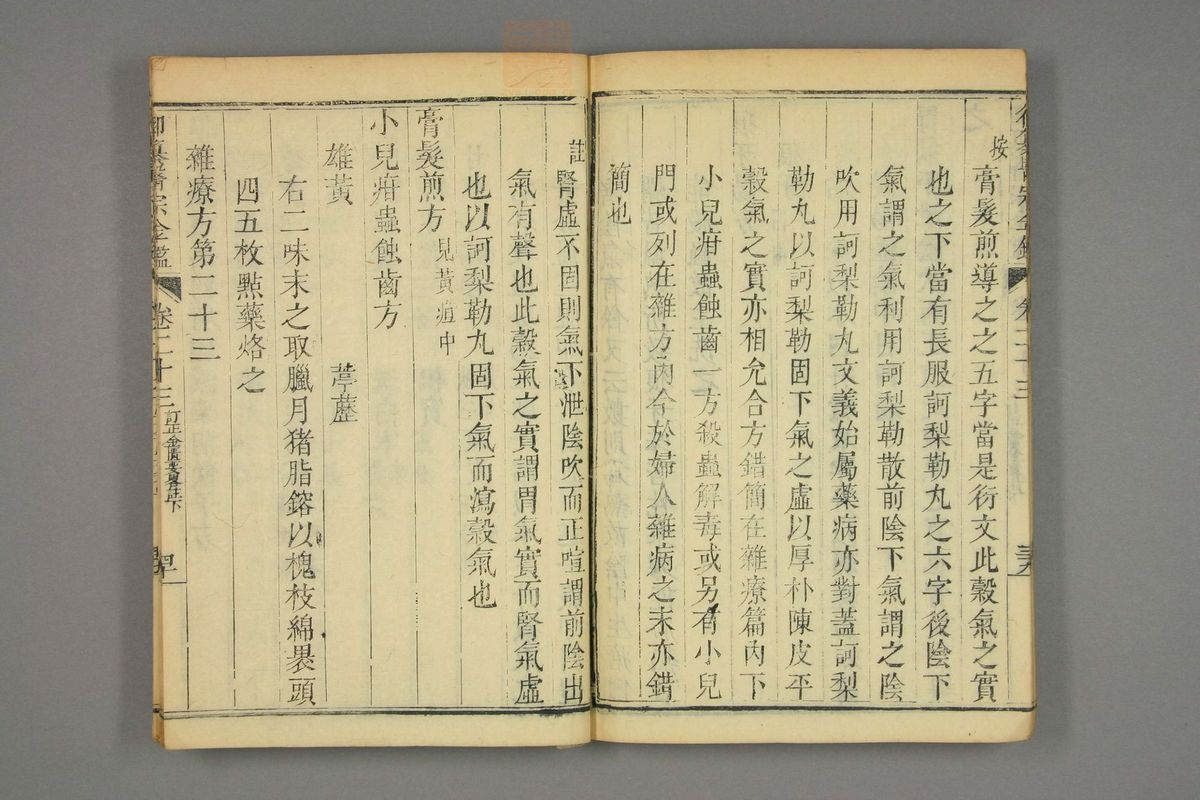 按
膏髮煎導之之五字當是衍文此穀氣之實
也之下當有長服訶梨勒丸之六字後陰下
氣謂之氣利用訶梨勒散前陰下氣謂之陰
吹用訶梨勒丸文義始屬藥病亦對蓋訶梨
勒丸以訶梨勒固下氣之虛以厚朴陳皮平
穀氣之實亦相允合方錯簡在雜療篇內下
小兒疳蟲蝕齒一方殺蟲解毒或另有小兒
門或列在雜方內今於婦人雜病之末亦錯
簡也
註
腎虛不固則氣下泄陰吹而正喧謂前陰出
氣有聲也此穀氣之實謂胃氣實而腎氣虛
也以訶梨勒丸固下氣而瀉穀氣也
膏髮煎方 見黃疸中
小兒疳蟲蝕齒方
雄黃 葶藶
右二味末之取臘月猪脂鎔以槐枝綿裹頭
四五枚點藥烙之
雜療方第二十三
御纂醫宗金鑑 卷二十三 訂正金匱要畧註下